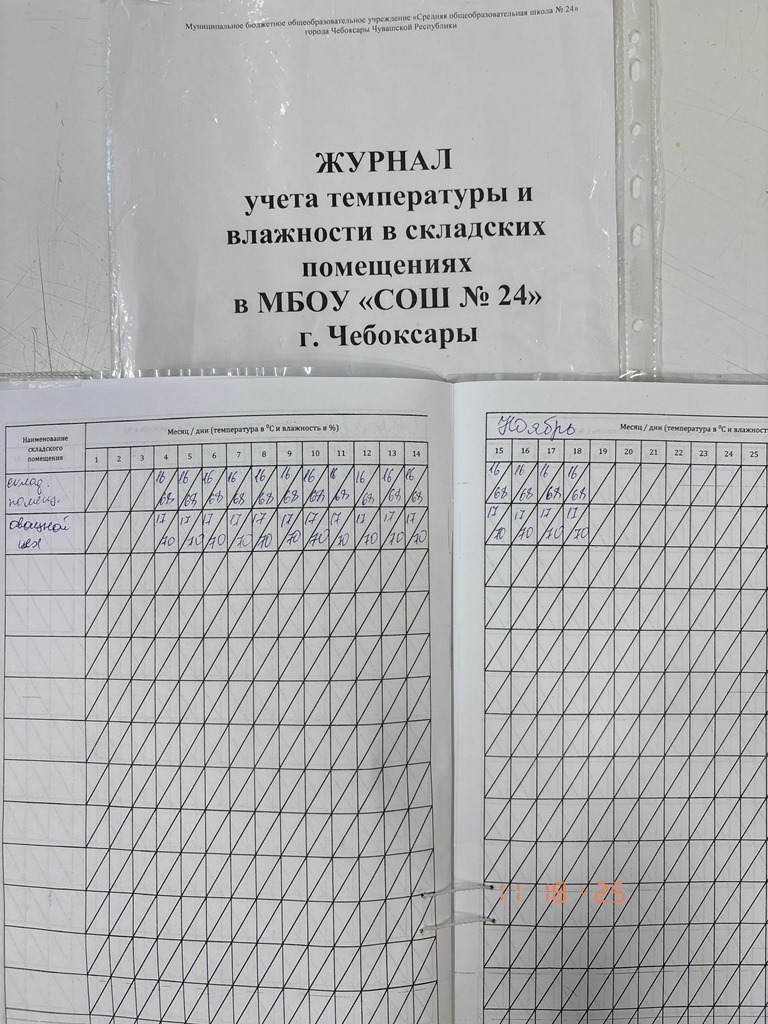 Муниципальное бюджетное общеобразовательное учреждение «Средняя общеобразовательная школа № 24»
города Чебоксары Чувашской Республики
ЖУРНАЛ
учета температуры и
влажности в складских
помещениях
в МБОУ «СОШ № 24»
г. Чебоксары
Наименование складского помещения
Месяц / дни (температура в ⁰С и влажность в %)
1 2 3 4 5 6 7 8 9 10 11 12 13 14
склад. 16 16 16 16 16 16 16 16 16 16 16
помещ. 68 68 68 68 68 68 68 68 68 68 68
овощной 17 17 17 17 17 17 17 17 17 17 17
цех 70 70 70 70 70 70 70 70 70 70 70
Ноябрь Месяц / дни (температура в ⁰С и влажност
15 16 17 18 19 20 21 22 23 24 25
16 16 16 16
68 68 68 68
17 17 17 17
70 70 70 70
11 18 '25